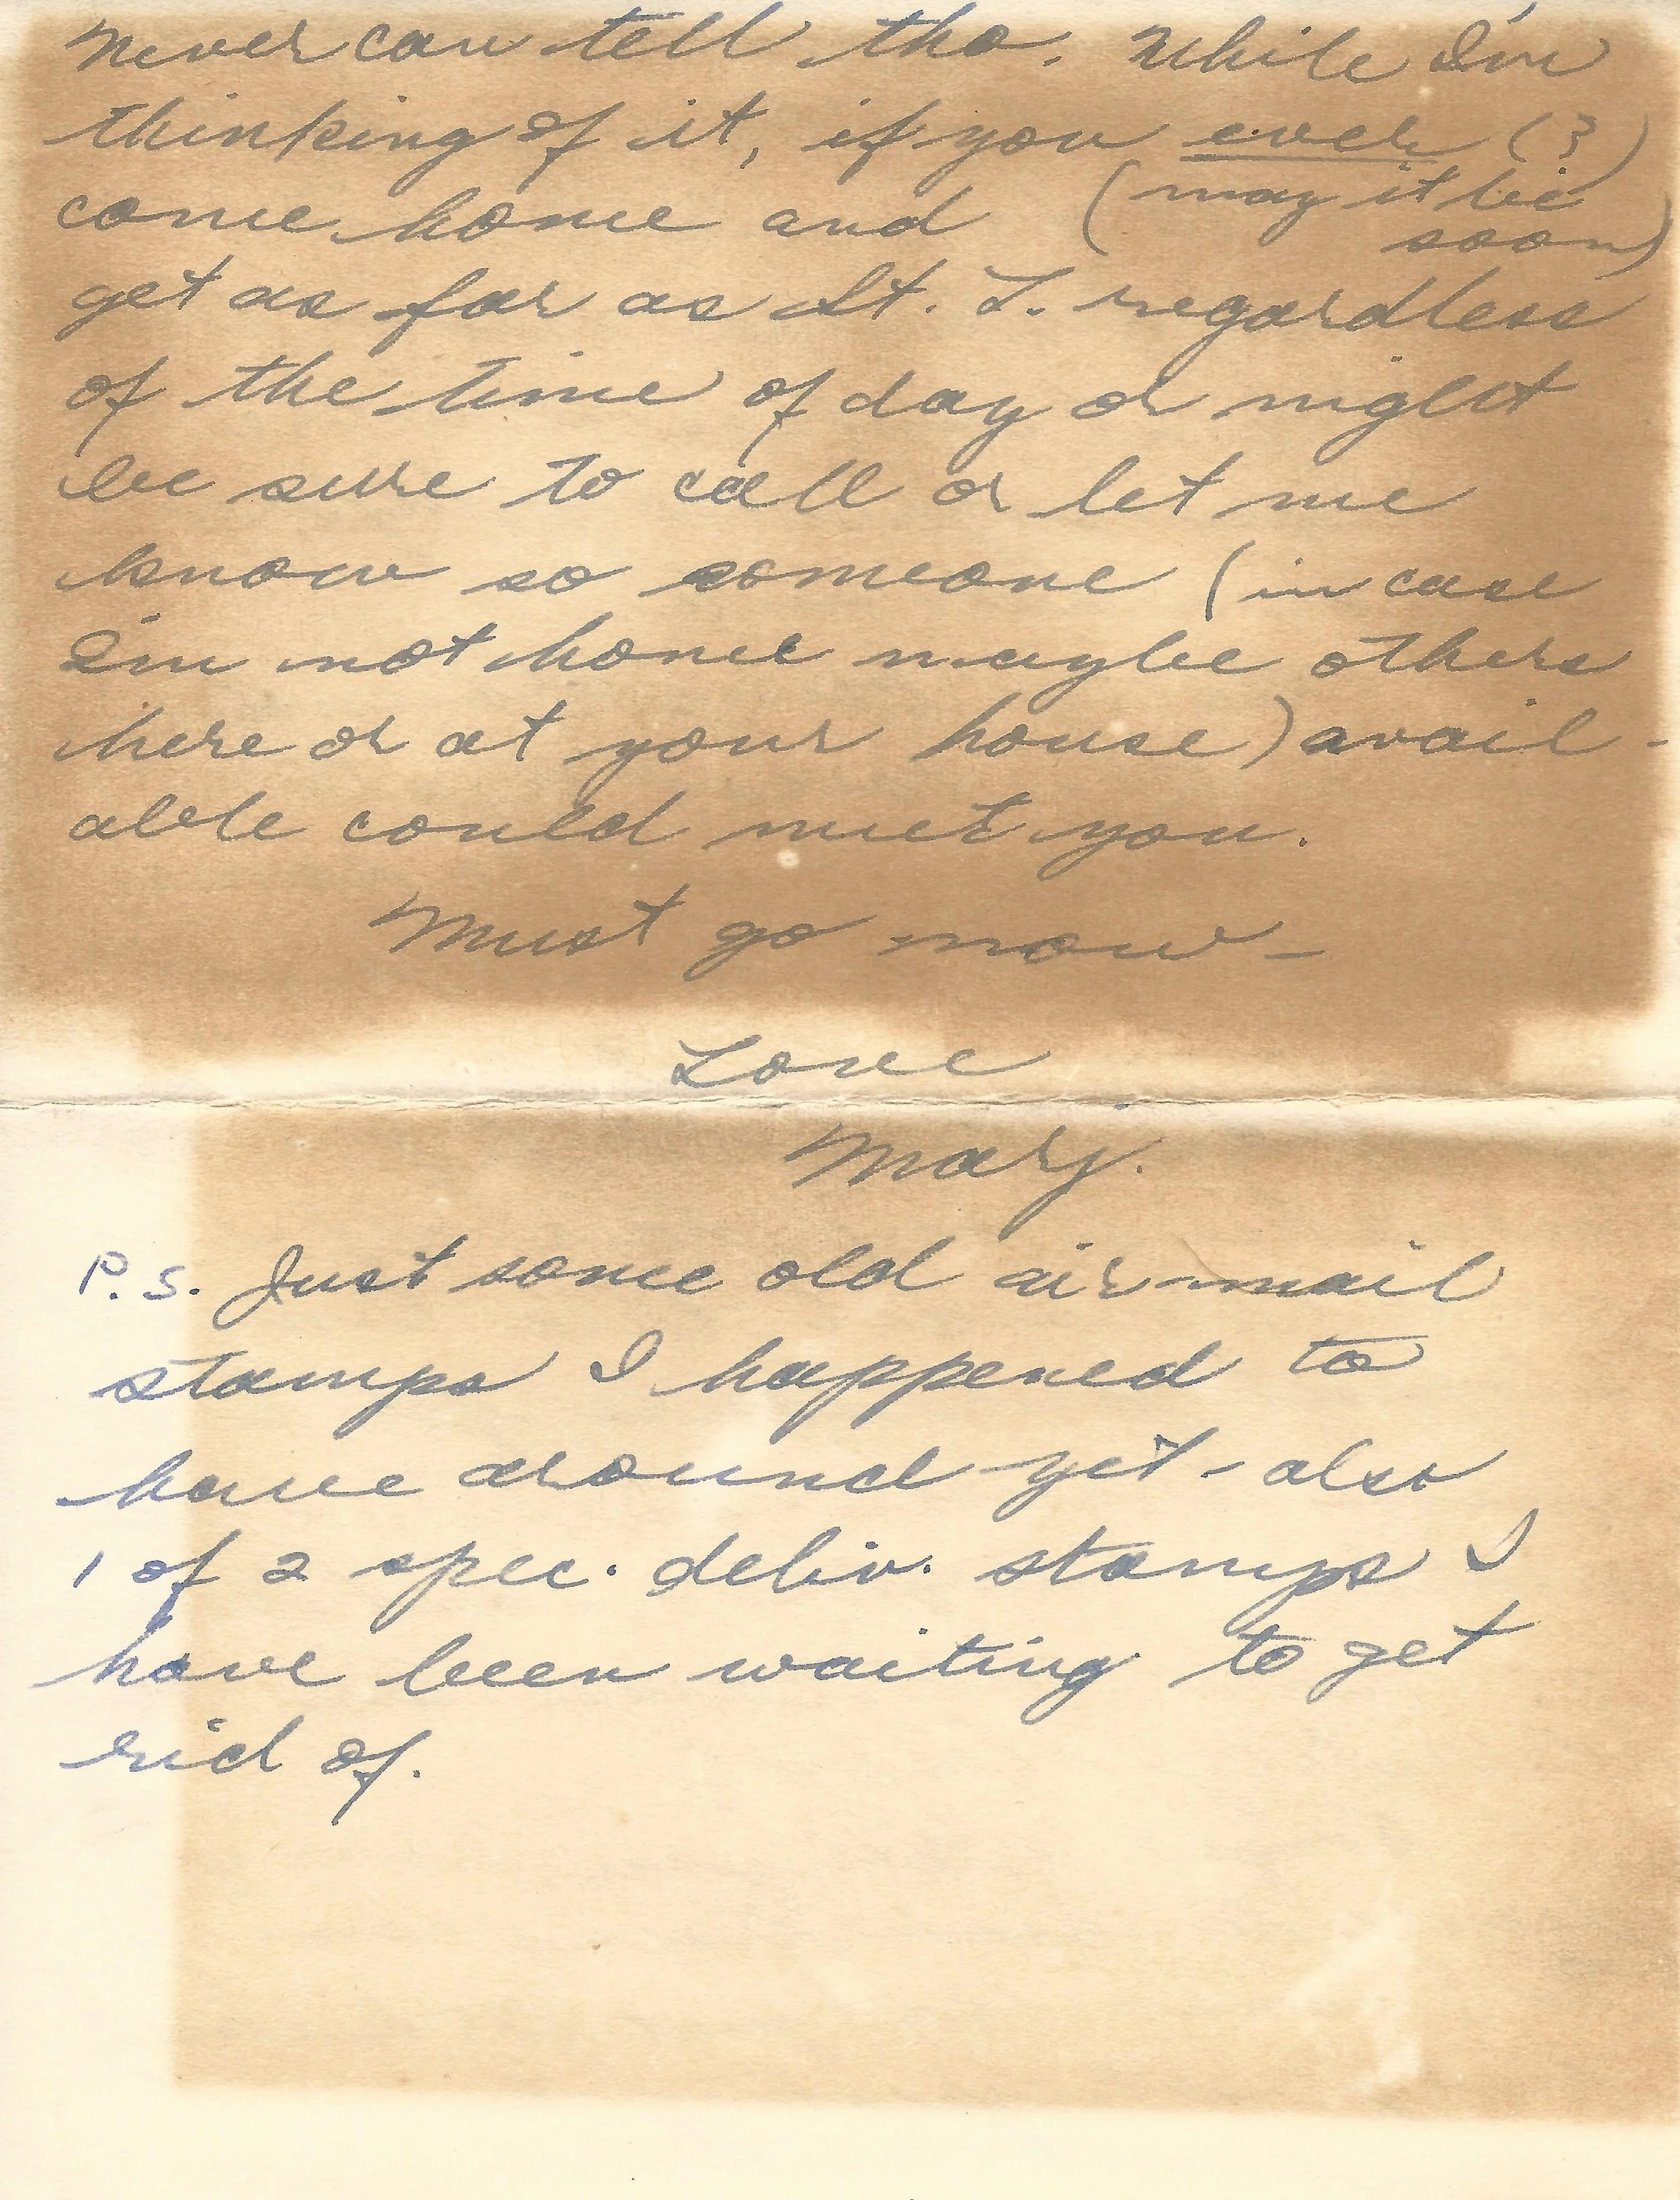 Never can tell tho. While I'm
thinking of it, if you ever (?)
come home and (may it be
soon)
get as far as St. L. regardless
of the time of day or night
be sure to call or let me
know so someone (in case
I'm not home maybe others
here or at your house) avail-
able could meet you.
Must go now –
Love
Marj.
P.S. Just some old air-mail
stamps I happened to
have around yet - also
1 of 2 spec. deliv. stamps I
have been waiting to get
rid of.